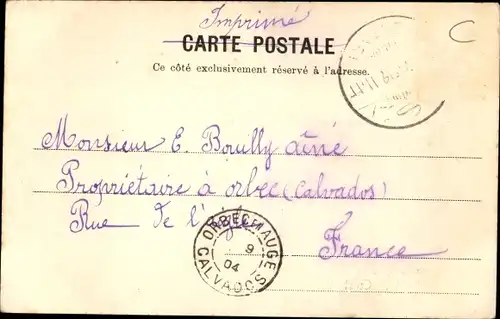 Imprimé
CARTE POSTALE
Ce côté exclusivement réservé à l'adresse.
C
Monsieur E. Bouilly aîné
Propriétaire à Orbec (Calvados)
Rue de l'
France
ORBEC-EN-AUGE
9
04
CALVADOS